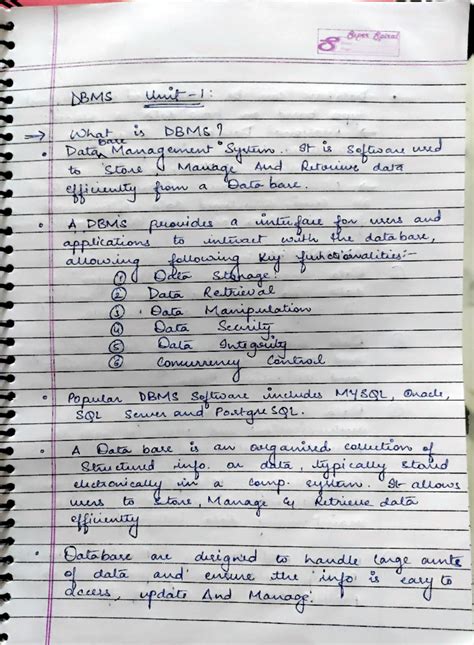 Super Spiral
DBMS Unit-1:
→ What is DBMS?
• Data Base Management System. It is Software used
to Store, Manage And Retrieve data
efficiently from a Data base.
• A DBMS provides a interface for users and
applications to interact with the database,
allowing following key functionalities:-
① Data Storage.
② Data Retrieval
③ Data Manipulation
④ Data Security
⑤ Data Integrity
⑥ Concurrency Control
• Popular DBMS Software includes MYSQL, Oracle,
SQL Server and PostgreSQL.
• A Data base is an organised collection of
Structured info. or data, typically stored
electronically in a comp. system. It allows
users to Store, Manage & Retrieve data
efficiently
• Database are designed to handle large amts
of data and ensure the info is easy to
access, update And Manage.